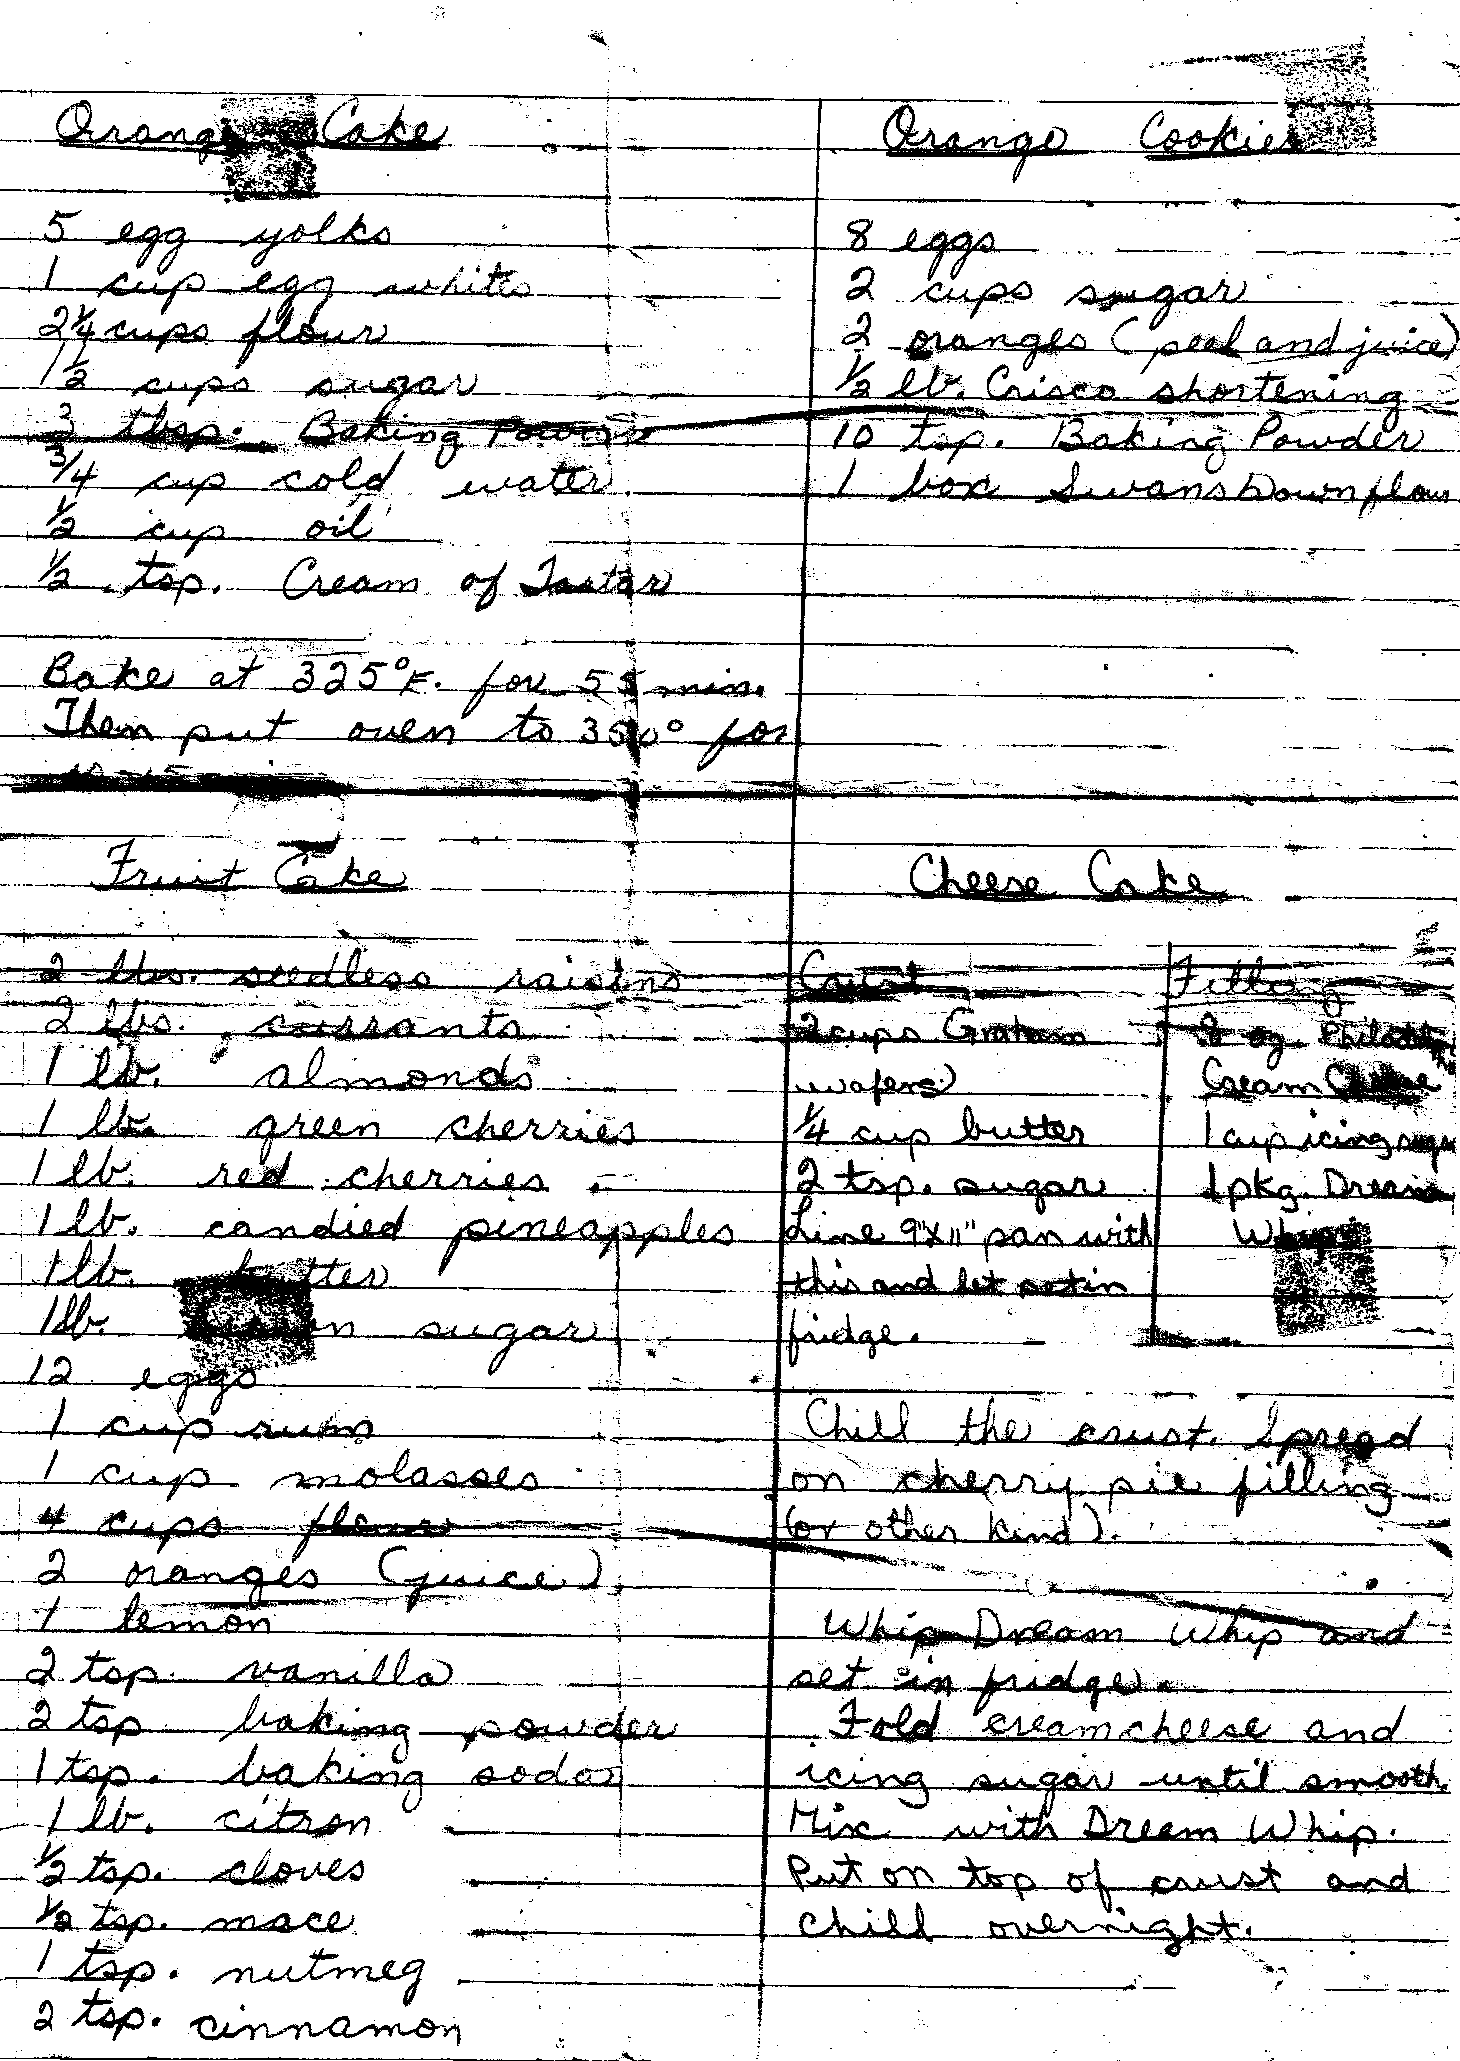 Orange Cake
5 egg yolks
1 cup egg whites
2 1/4 cups flour
1 1/2 cups sugar
3 tbsp. Baking Powder
3/4 cup cold water
1/2 cup oil
1/2 tsp. Cream of Tartar
Bake at 325°F. for 55 min.
Then put oven to 350° for
10-15
Orange Cookies
8 eggs
2 cups sugar
2 oranges (peel and juice)
1/2 lb. Crisco shortening
10 tsp. Baking Powder
1 box Swans Down flour
Fruit Cake
2 lbs. seedless raisins
2 lbs. currants
1 lb. almonds
1 lb. green cherries
1 lb. red cherries
1 lb. candied pineapples
1 lb. butter
1 lb. sugar
12 eggs
1 cup rum
1 cup molasses
4 cups flour
2 oranges (juice)
1 lemon
2 tsp. vanilla
2 tsp baking powder
1 tsp. baking soda
1 lb. citron
1/2 tsp. cloves
1/2 tsp. mace
1 tsp. nutmeg
2 tsp. cinnamon
Cheese Cake
Crust
2 cups Graham
wafers
1/4 cup butter
2 tsp. sugar
Line 9"x11" pan with
this and let set in
fridge.
Filling
8 oz. Philadel
Cream Cheese
1 cup icing sugar
1 pkg. Dream
Whip
Chill the crust. Spread
on cherry pie filling
(or other kind).
Whip Dream Whip and
set in fridge.
Fold creamcheese and
icing sugar until smooth.
Mix with Dream Whip.
Put on top of crust and
chill overnight.